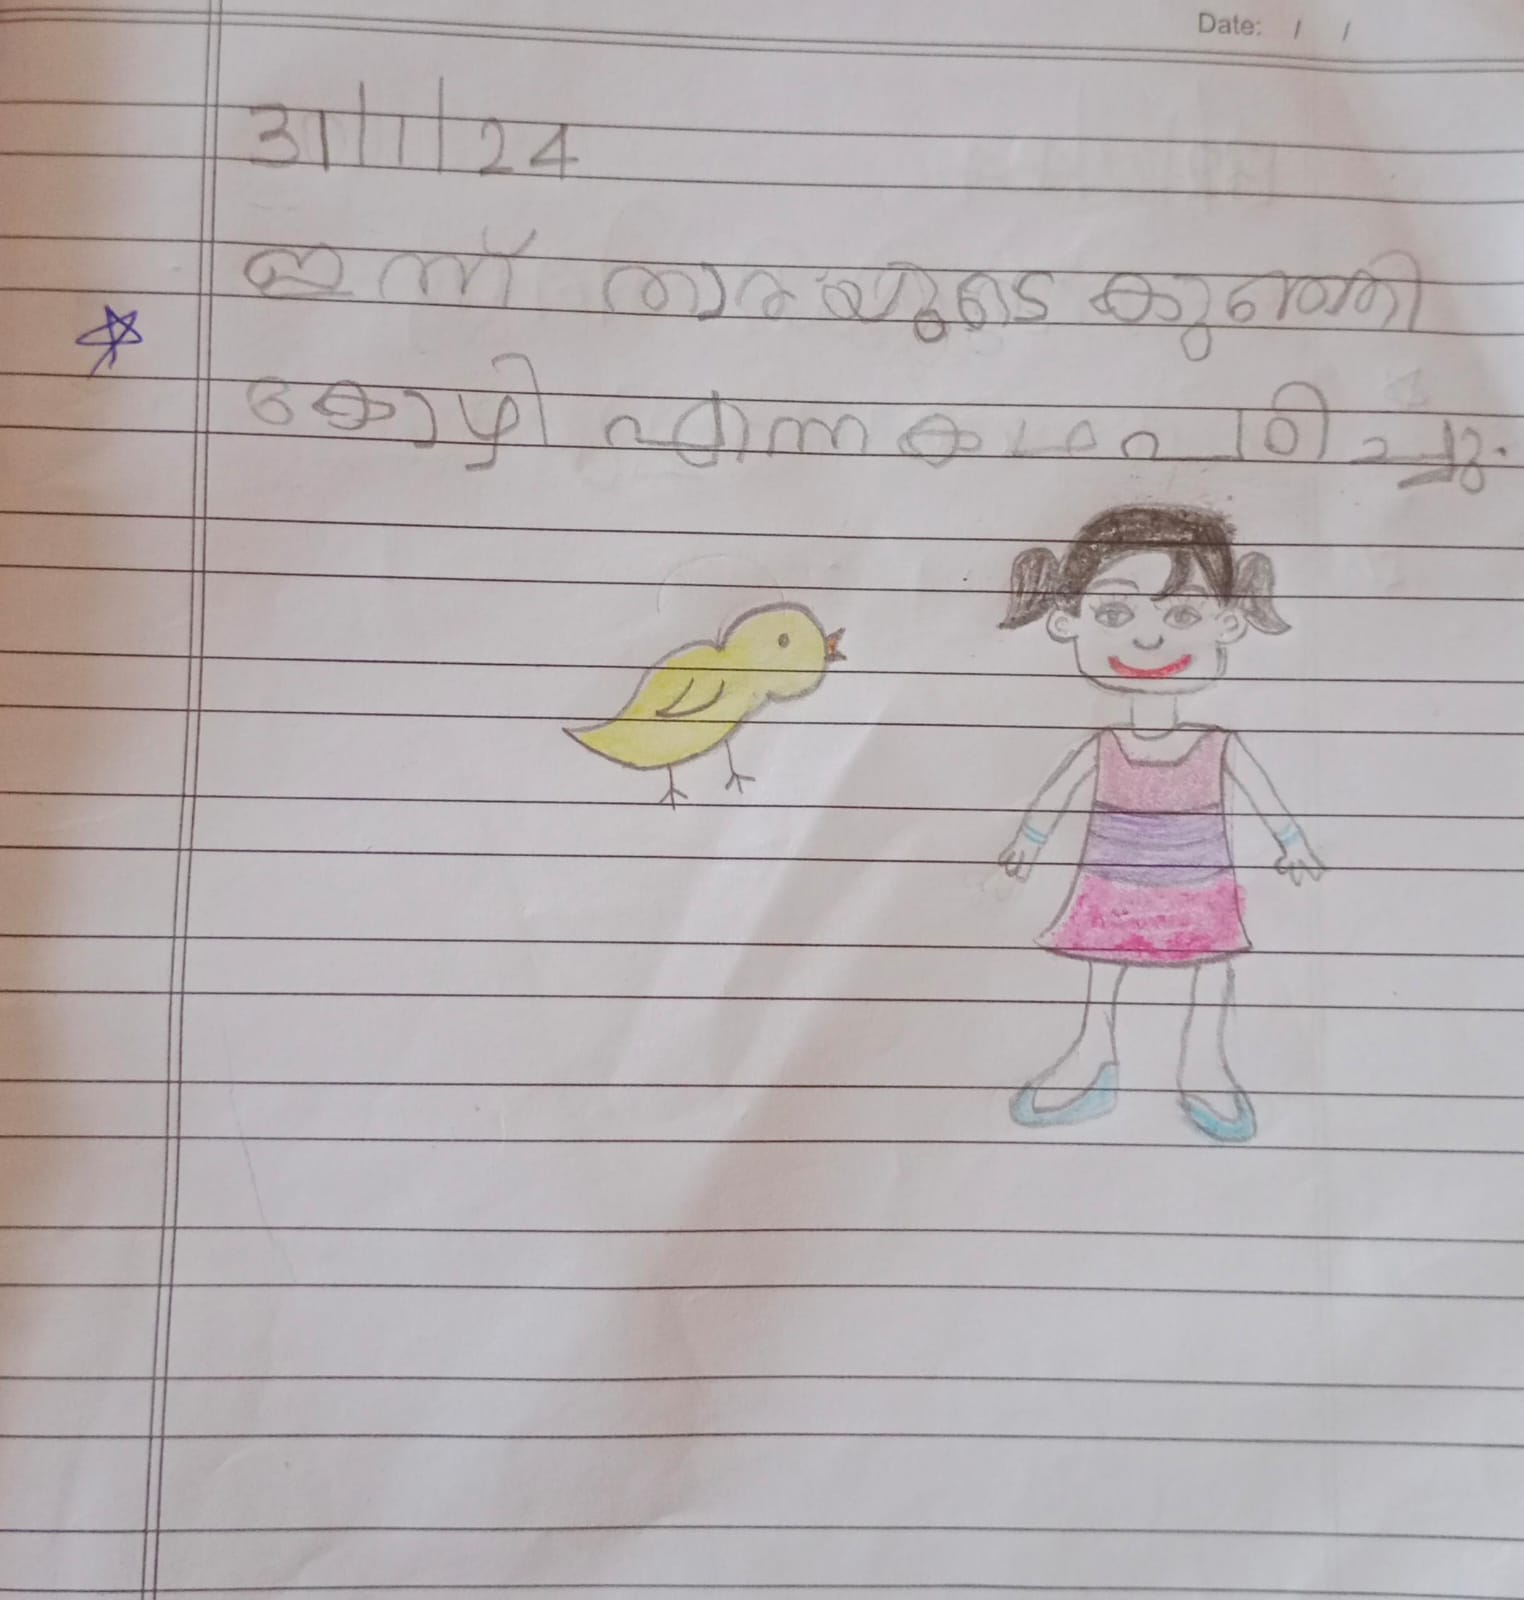 Date: / /
31/1/24
ഇന്ന് താരയുടെ കുഞ്ഞി
കോഴി എന്ന കഥ പഠിച്ചു.